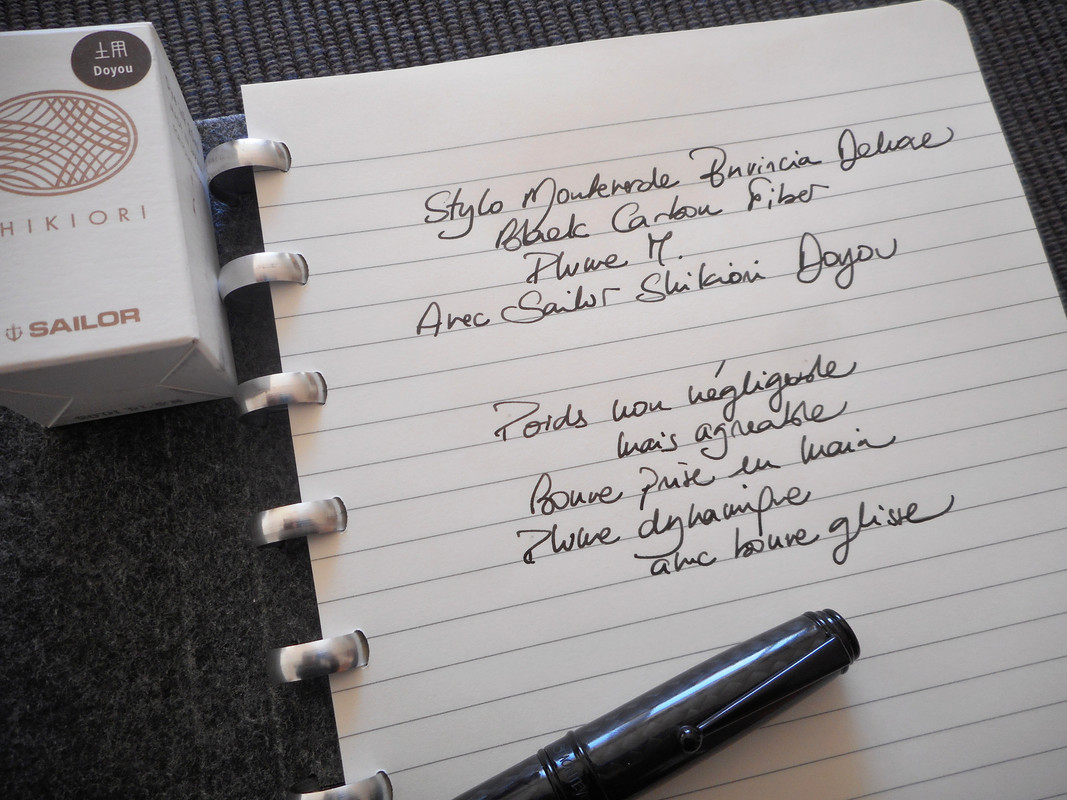 土用
Doyou
HIKIORI
SAILOR
Stylo Monteverde Invincia Deluxe
Black Carbon Fiber
Plume M.
Avec Sailor Shikiori Doyou
Poids non négligeable
mais agréable
Bonne prise en main
Plume dynamique
avec bonne glisse